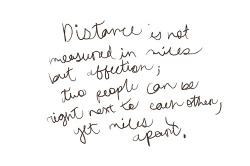 Distance is not
measured in miles
but affection;
two people can be
right next to each other,
yet miles
apart.